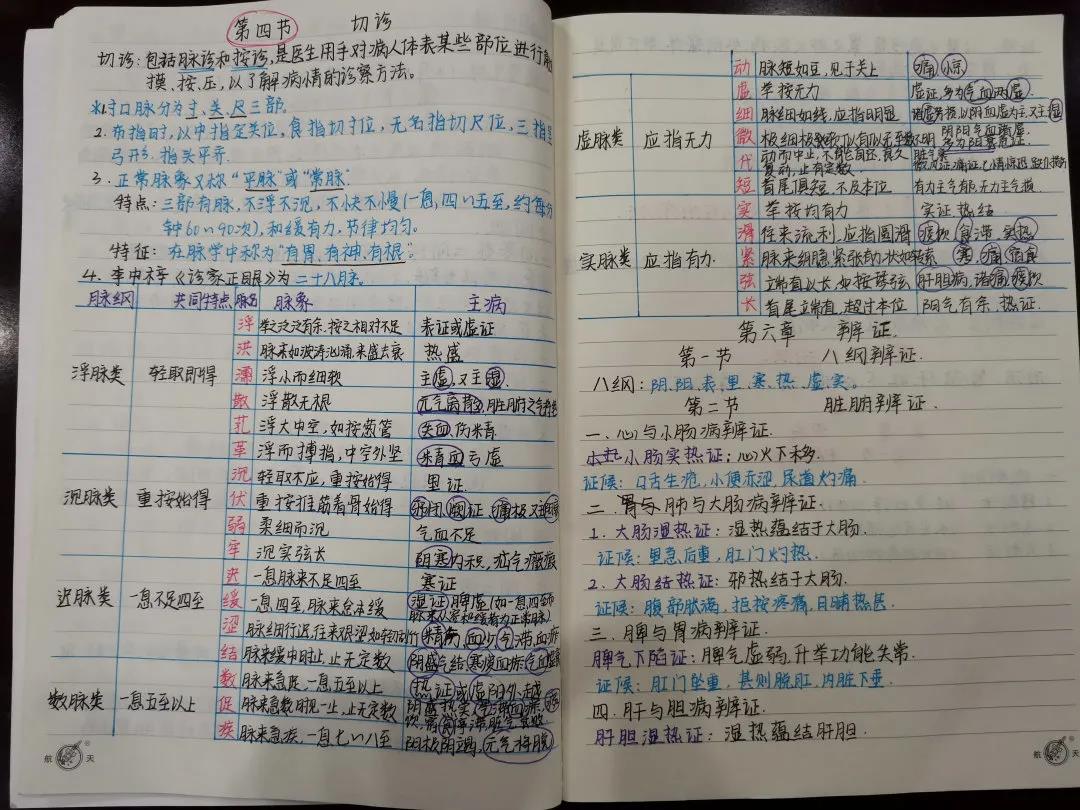 第四节 切诊
切诊:包括脉诊和按诊,是医生用手对病人体表某些部位进行触
摸、按、压,以了解病情的诊察方法。
1.寸口脉分为寸、关、尺三部。
2.布指时,以中指定关位,食指切寸位,无名指切尺位,三指呈
弓形,指头平齐.
3.正常脉象又称“平脉”或“常脉”.
特点:三部有脉,不浮不沉,不快不慢(一息,四~五至,约每分
钟60~90次),和缓有力,节律均匀。
特征:在脉学中称为“有胃、有神、有根”。
4.李中梓《诊家正眼》为二十八脉.
脉纲 共同特点 脉名 脉象 主病
浮脉类 轻取即得
浮 举之泛泛有余,按之相对不足 表证或虚证
洪 脉来如波涛汹涌,来盛去衰 热盛
濡 浮小而细软 主虚,又主湿.
散 浮散无根 元气离散,脏腑之气
芤 浮大中空,如按葱管 失血,伤精
革 浮而搏指,中空外坚 精血亏虚
沉脉类 重按始得
沉 轻取不应,重按始得 里证.
伏 重按推筋着骨始得 邪闭
弱 柔细而沉 气血不足
牢 沉实弦长 阴寒内积,疝气癥瘕
迟脉类 一息不足四至
迟 一息脉来不足四至 寒证
缓 一息四至,脉来怠缓 湿证,脾虚(如一息四至而
脉来从容和缓者为正常脉)
涩 脉细行迟,往来艰涩如轻刀刮竹 精伤,血少,气滞,血瘀
结 脉来缓中时止,止无定数 阴盛气结,寒痰血瘀,气血虚衰
数脉类 一息五至以上
数 脉来急促,一息五至以上 热证或虚阳外越
促 脉来急数时见一止,止无定数 阳盛热实,
疾 脉来急疾,一息七~八至 阳极阴竭,元气将脱
航天
虚脉类 应指无力
动 脉短如豆,见于关上 痛,惊
虚 举按无力 虚证,多为气血两虚.
细 脉细如线,应指明显
微 极细极软,似有似无至数不明
代 动而中止,不能自还,良久
复动,止有定数. 脏气衰
短 首尾俱短,不及本位 有力主气郁,无力主气损
实脉类 应指有力.
实 举按均有力 实证,热结
滑 往来流利,应指圆滑 痰饮,食滞,实热
紧 寒,痛,宿食
弦 端直以长,如按琴弦 肝胆病,诸痛,痰饮
长 首尾端直,超过本位 阳气有余,热证.
第六章 辨证.
第一节 八纲辨证.
八纲:阴、阳、表、里、寒、热、虚、实。
第二节 脏腑辨证.
一、心与小肠病辨证.
小肠实热证:心火下移.
证候:口舌生疮,小便赤涩,尿道灼痛.
二.胃与肺与大肠病辨证.
1.大肠湿热证:湿热蕴结于大肠.
证候:里急后重,肛门灼热.
2.大肠结热证:邪热结于大肠.
证候:腹部胀满,拒按疼痛,日晡热甚.
三.脾与胃病辨证.
脾气下陷证:脾气虚弱,升举功能失常.
证候:肛门坠重,甚则脱肛,内脏下垂.
四.肝与胆病辨证.
肝胆湿热证:湿热蕴结肝胆.
航天